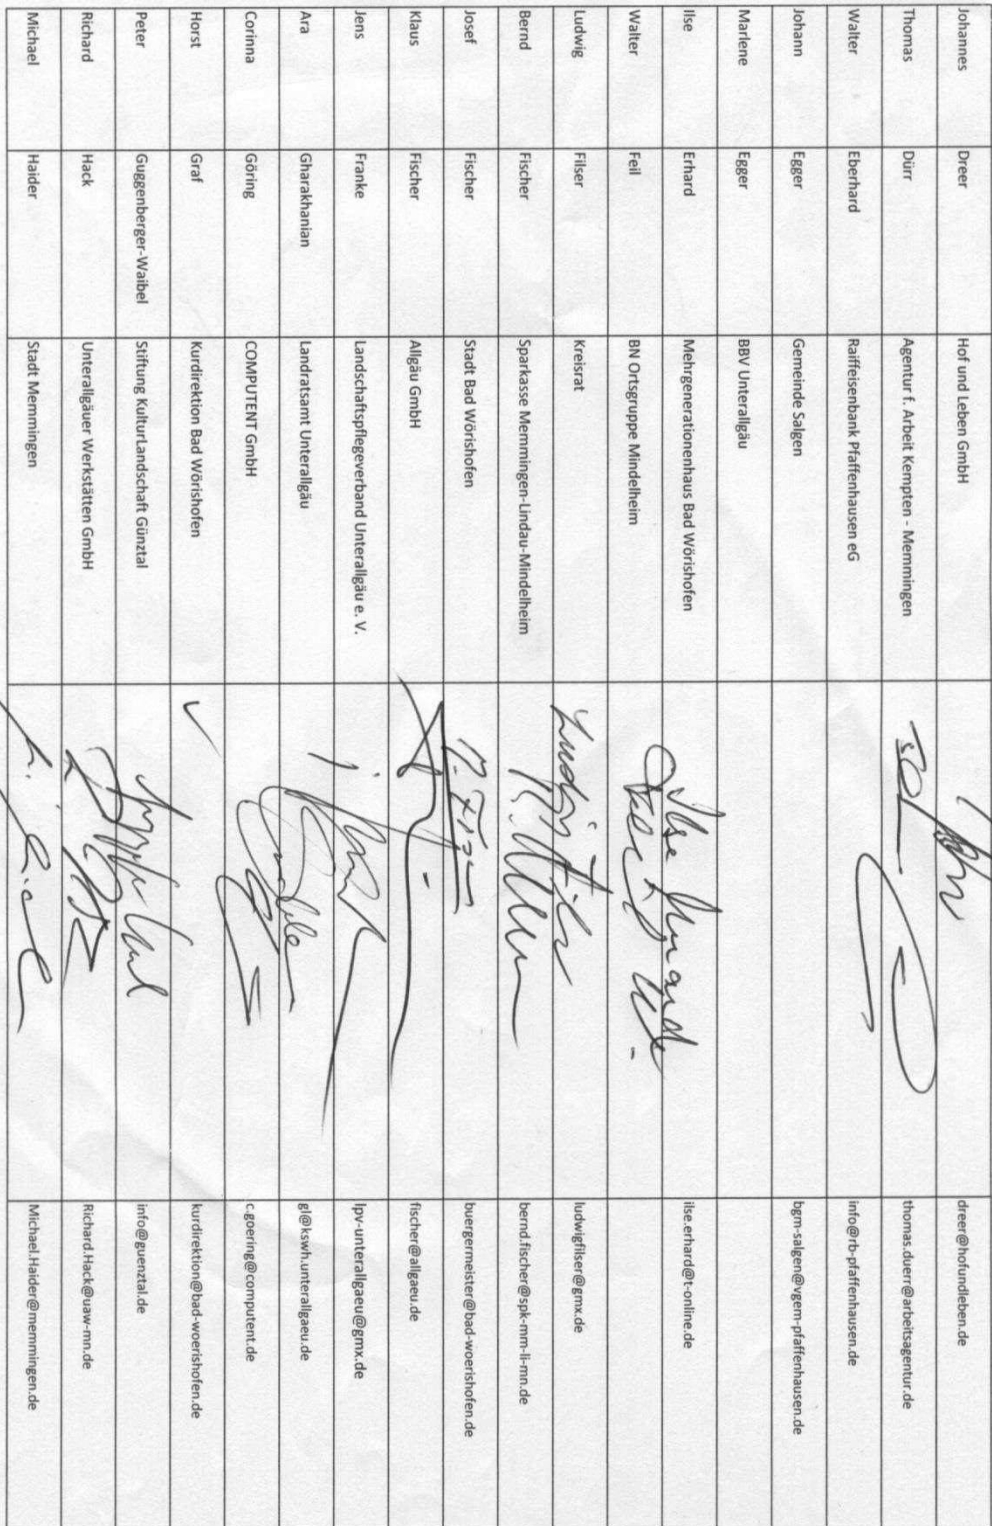 Johannes Dreer Hof und Leben GmbH dreer@hofundleben.de
Thomas Dürr Agentur f. Arbeit Kempten - Memmingen thomas.duerr@arbeitsagentur.de
Walter Eberhard Raiffeisenbank Pfaffenhausen eG info@rb-pfaffenhausen.de
Johann Egger Gemeinde Salgen bgm-salgen@vgem-pfaffenhausen.de
Marlene Egger BBV Unterallgäu
Ilse Erhard Mehrgenerationenhaus Bad Wörishofen ilse.erhard@t-online.de
Walter Feil BN Ortsgruppe Mindelheim
Ludwig Filser Kreisrat Ludwig Filser ludwigfilser@gmx.de
Bernd Fischer Sparkasse Memmingen-Lindau-Mindelheim bernd.fischer@spk-mm-li-mn.de
Josef Fischer Stadt Bad Wörishofen buergermeister@bad-woerishofen.de
Klaus Fischer Allgäu GmbH fischer@allgaeu.de
Jens Franke Landschaftspflegeverband Unterallgäu e. V. lpv-unterallgaeu@gmx.de
Ara Gharakhanian Landratsamt Unterallgäu gl@kswh.unterallgaeu.de
Corinna Göring COMPUTENT GmbH c.goering@computent.de
Horst Graf Kurdirektion Bad Wörishofen kurdirektion@bad-woerishofen.de
Peter Guggenberger-Waibel Stiftung KulturLandschaft Günztal info@guenztal.de
Richard Hack Unterallgäuer Werkstätten GmbH Richard.Hack@uaw-mn.de
Michael Haider Stadt Memmingen Michael.Haider@memmingen.de